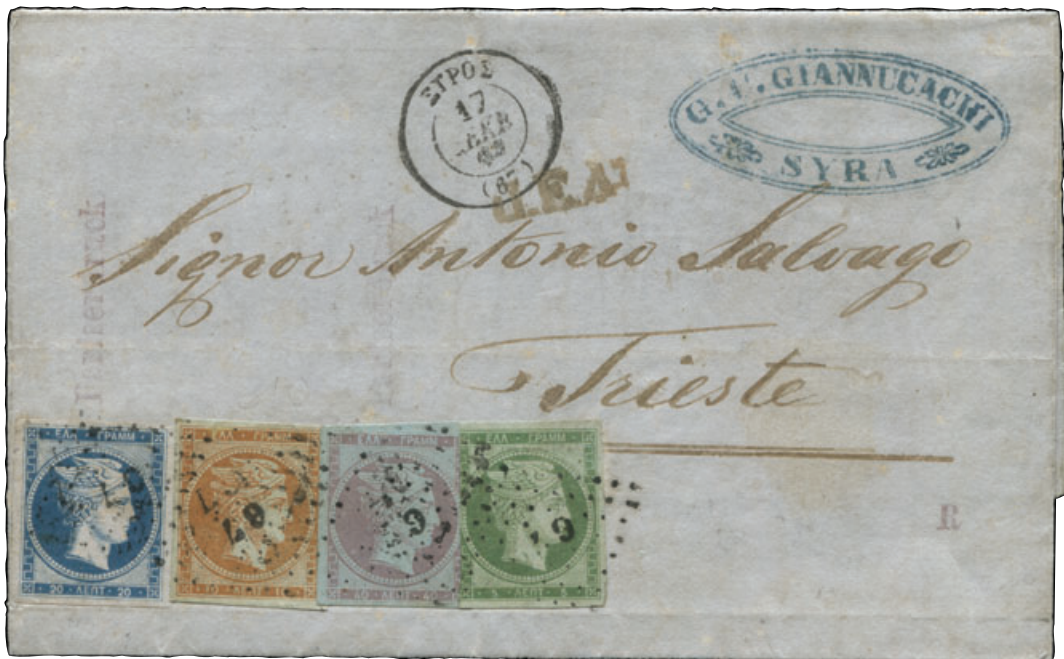 ΣΥΡΟΣ
17
ΔΕΚ
(67)
GIANNUCACHI
SYRA
Signor Antonio Salvago
Trieste
ΕΛΛ ΓΡΑΜΜ
20 ΛΕΠΤ 20
ΕΛΛ ΓΡΑΜΜ
10 ΛΕΠΤ
67
ΕΛΛ ΓΡΑΜΜ
40 ΛΕΠΤ 40
ΕΛΛ ΓΡΑΜΜ
5 ΛΕΠΤ 5
R